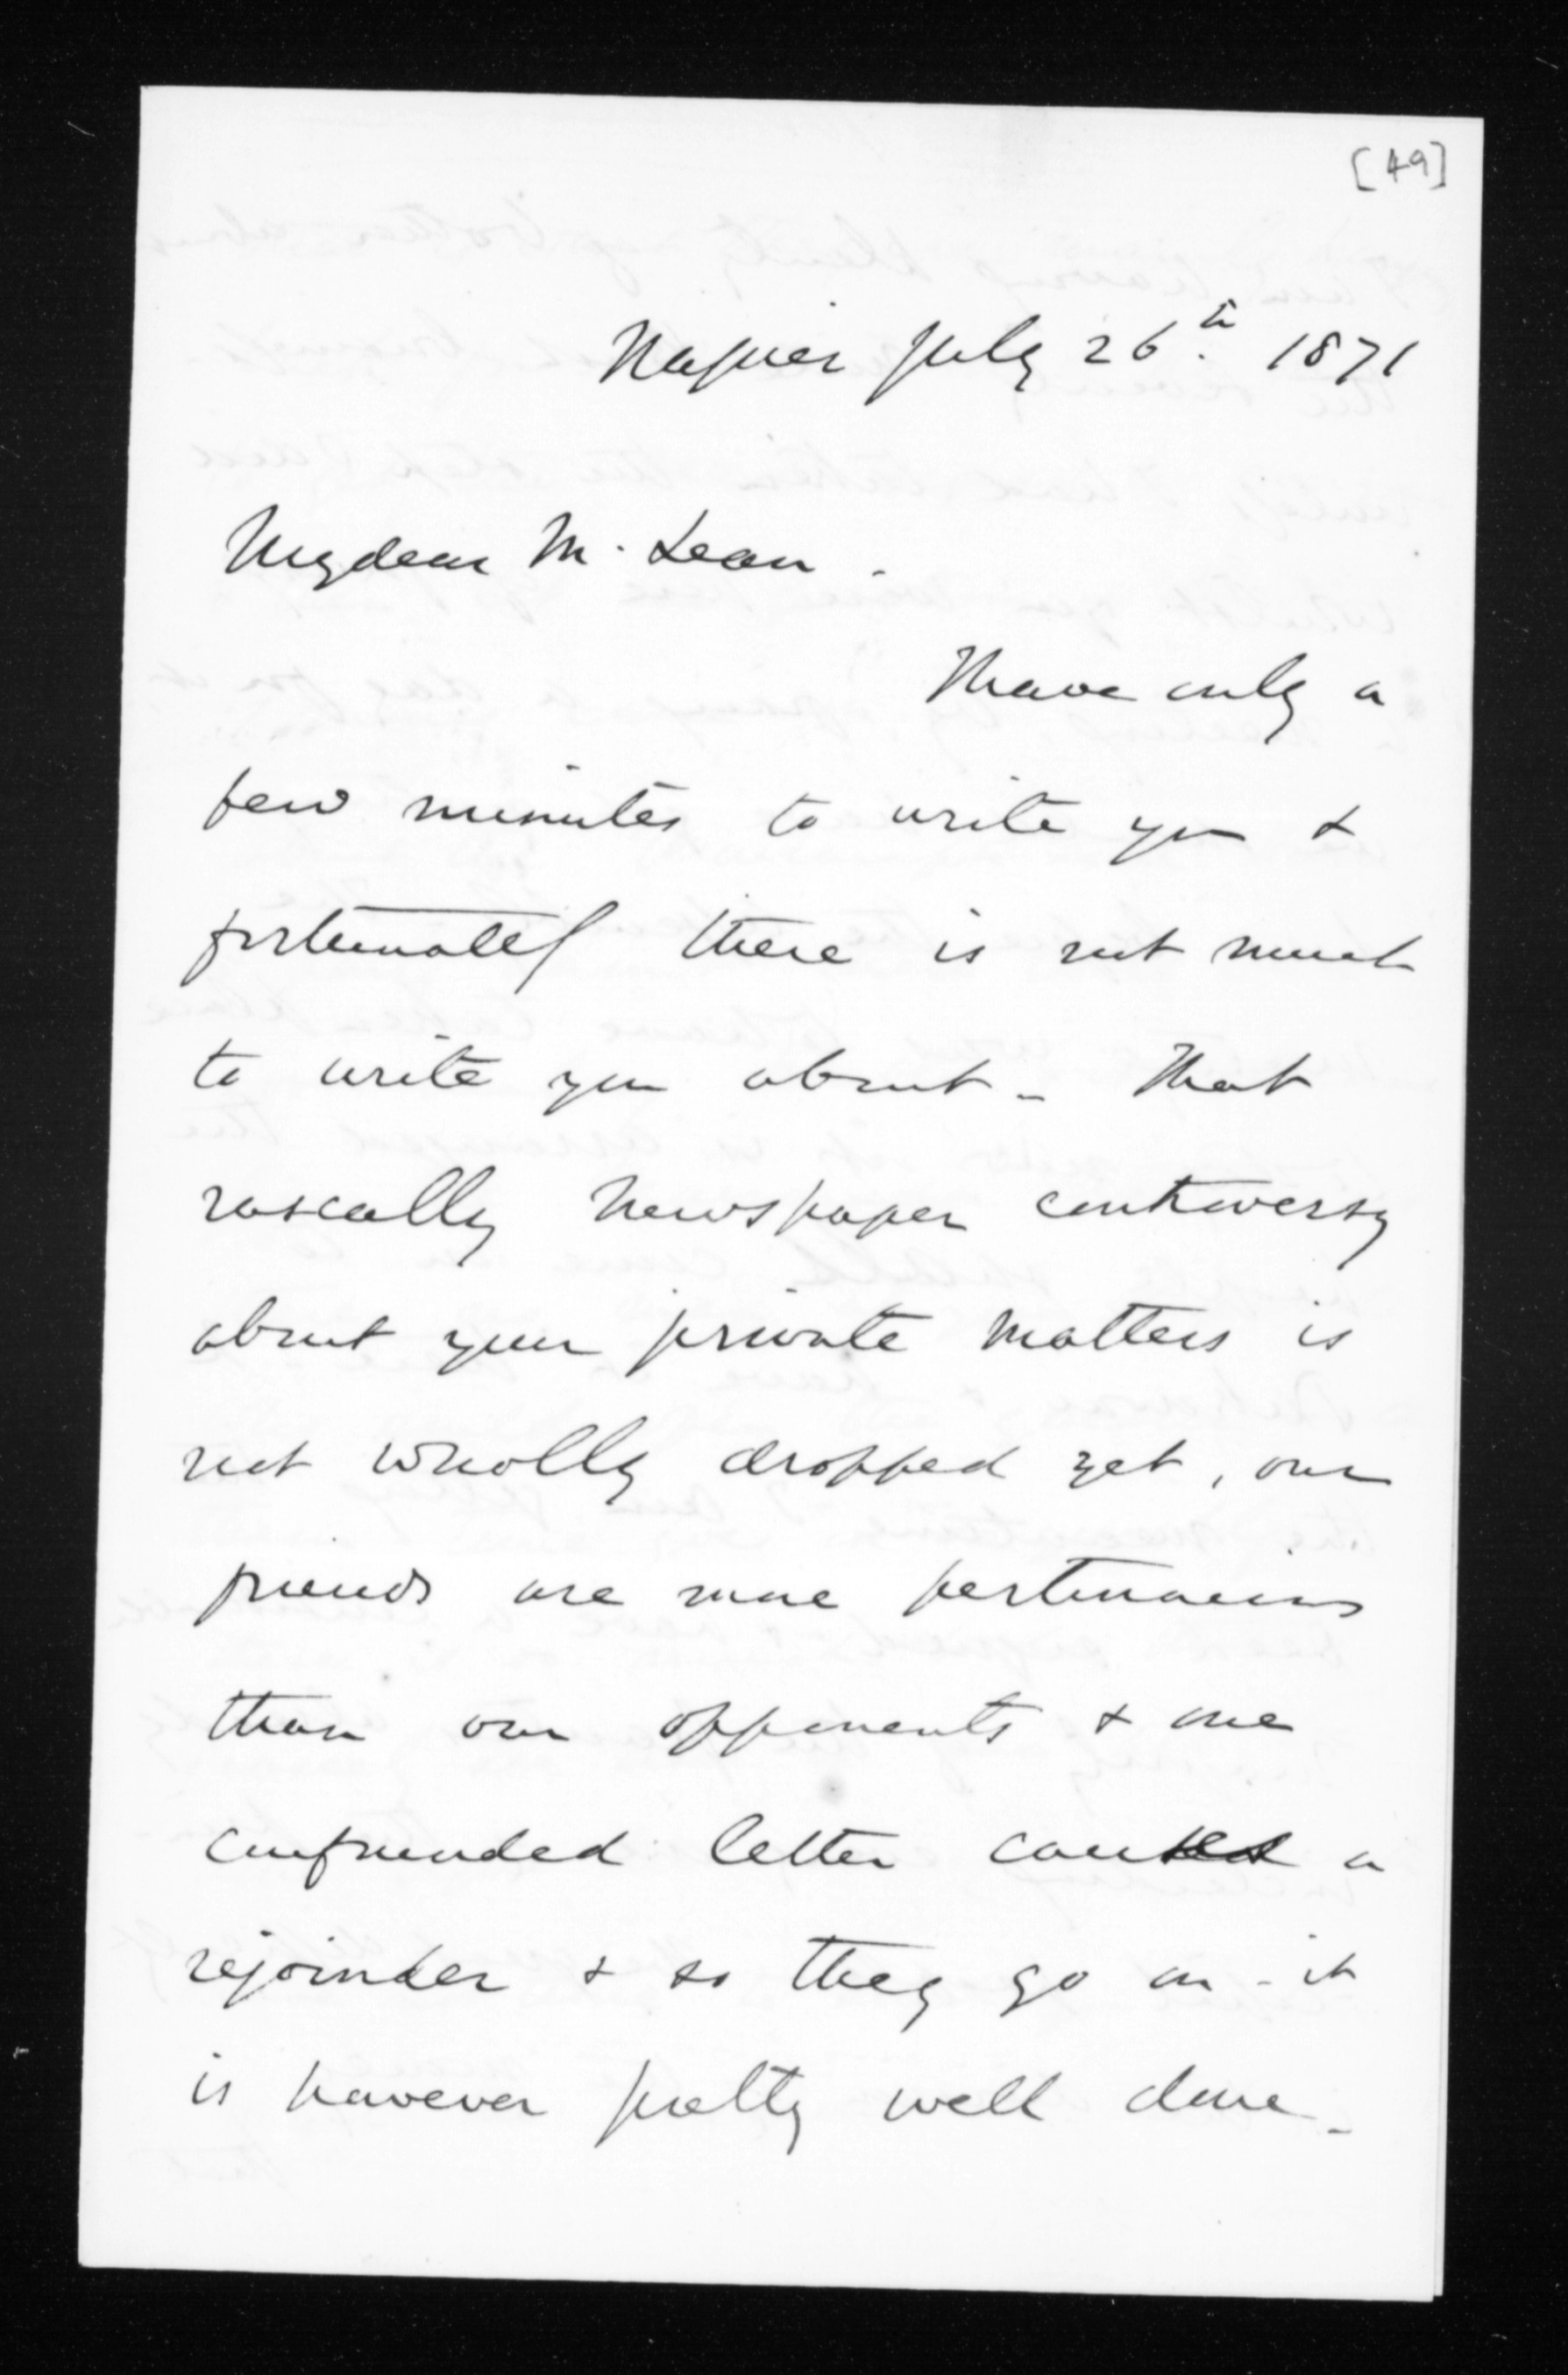 [49]
Napier July 26th. 1871
My dear M. Lean.
I have only a
few minutes to write you &
fortunately there is not much
to write you about - That
rascally newspaper controversy
about your private matters is
not wholly dropped yet, our
friends are more pertinacious
than our opponents & one
confounded letter causes a
rejoinder & so they go on - it
is however pretty well done -